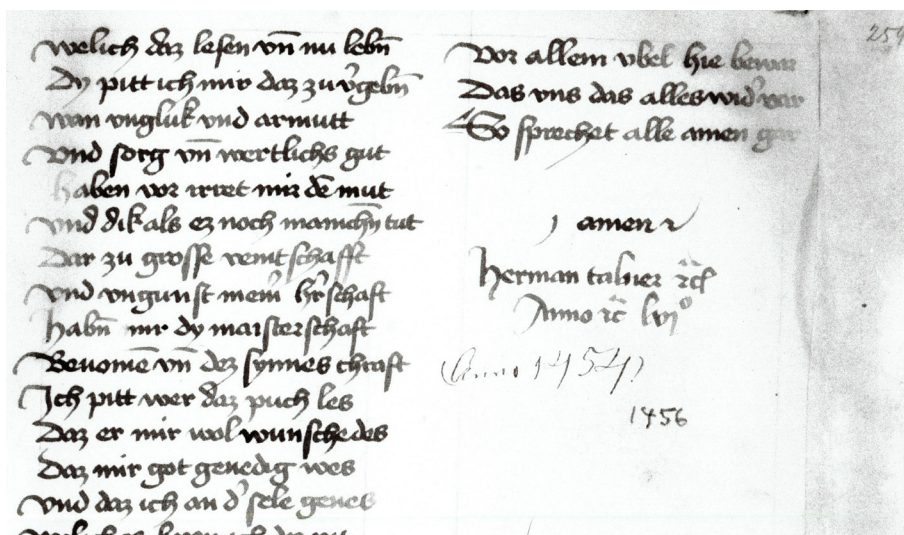 welich daz lesen vn̄ nu lebn̄
Dy pitt ich mir daz zu v'gebn̄
wan vngluk vnd armutt
Vnd sorg vn̄ wertlichs gut
haben vor irret mir dē mut
vnd dik als ez noch manichn̄ tut
Dar zu grosse veintschafft
vnd vngunst mein' h'rschaft
habn̄ mir dy maisterschaft
Benomē vn̄ dez synnes chraft
Ich pitt wer daz puch les
Daz er mir wol wunsche des
Daz mir got genedig wes
vnd daz ich an d' sele genes
Vor allem vbel hie bewar
Das vns das alles wid'var
So sprechet alle amen gar
amen
Herman talner
Anno lvi°
Anno 1454
1456
259